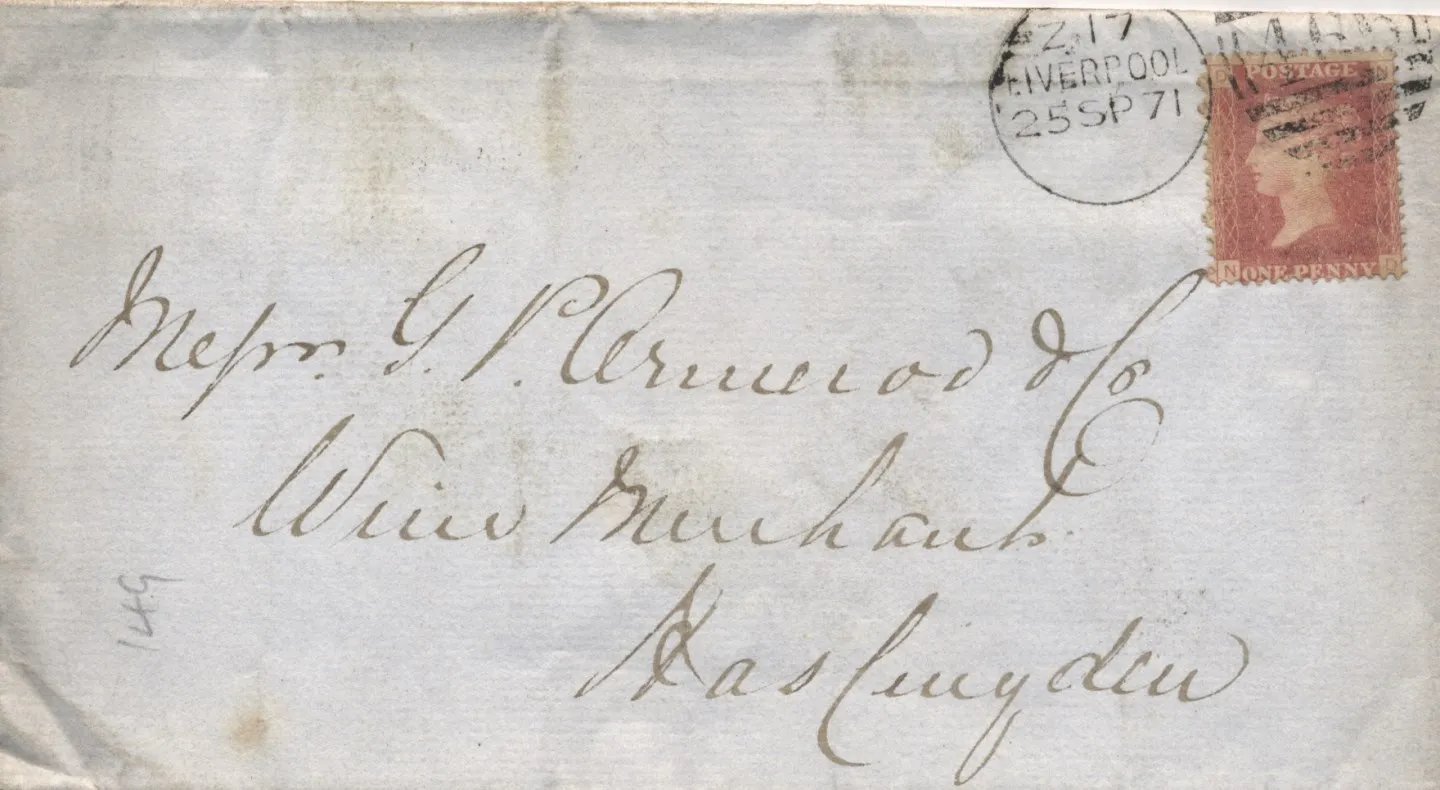 Z 17
LIVERPOOL
25 SP 71
POSTAGE
N ONE PENNY D
Messrs. G. P. Ormerod & Co
Wine Merchants
Haslingden
149